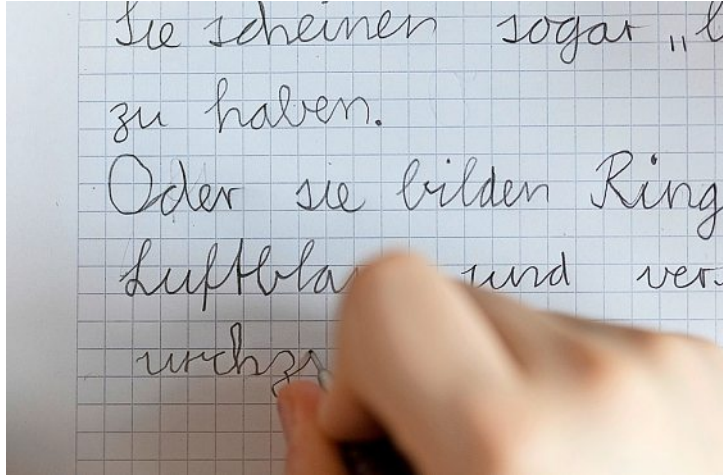 Sie scheinen sogar „
zu haben.
Oder sie bilden Ring
Luftbla und ver